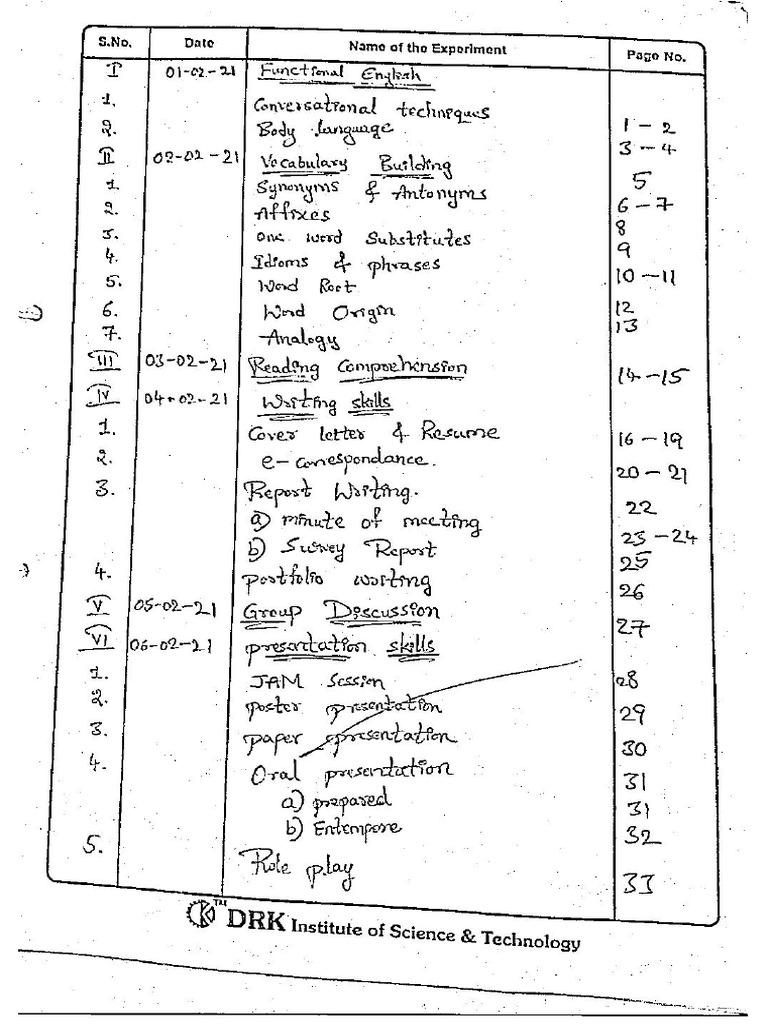 S.No. Date Name of the Experiment Page No.
I 01-02-21 Functional English
1. Conversational techniques 1 - 2
2. Body language 3 - 4
II 02-02-21 Vocabulary Building
1. Synonyms & Antonyms 5
2. Affixes 6 - 7
3. One word Substitutes 8
4. Idioms & phrases 9
5. Word Root 10 - 11
6. Word Origin 12
7. Analogy 13
III 03-02-21 Reading Comprehension 14 - 15
IV 04-02-21 Writing skills
1. Cover letter & Resume 16 - 19
2. e-correspondance. 20 - 21
3. Report Writing. 22
a) minute of meeting 23 - 24
b) Survey Report 25
4. portfolio writing 26
V 05-02-21 Group Discussion 27
VI 06-02-21 presentation skills
1. JAM Session 28
2. poster presentation 29
3. paper presentation 30
4. Oral presentation 31
a) prepared 31
b) Entempore 32
5. Role play 33
TM DRK Institute of Science & Technology